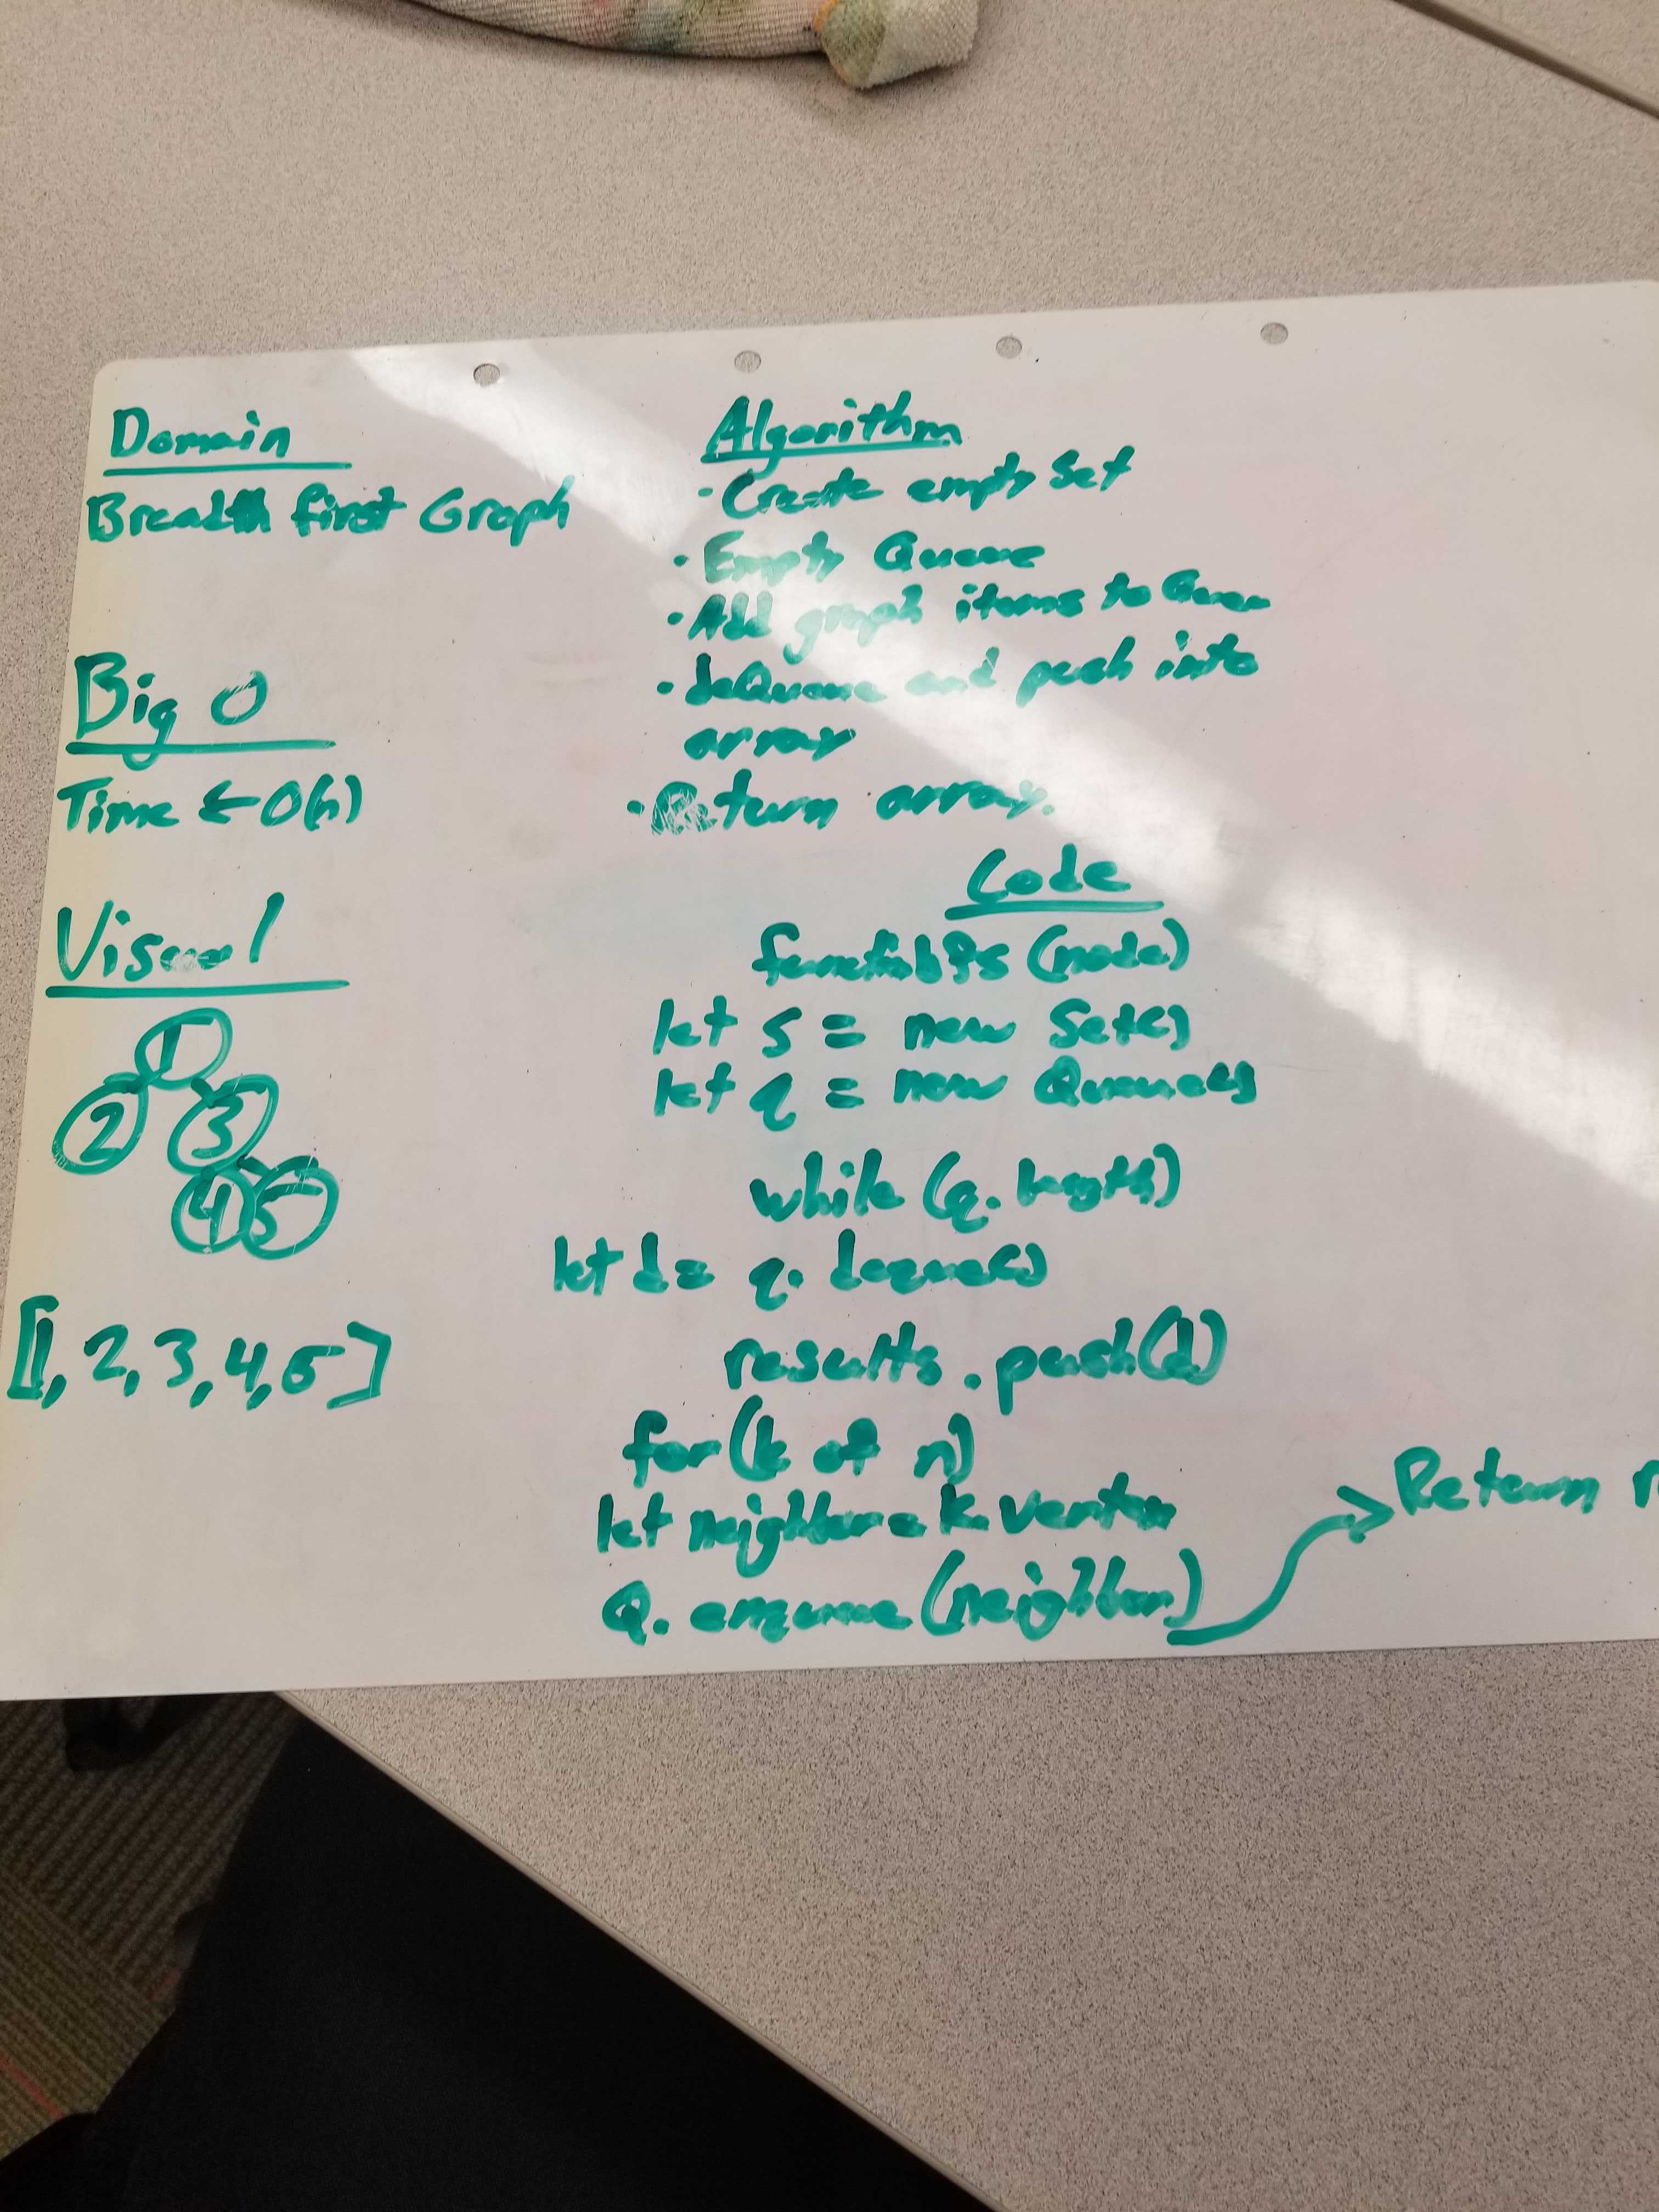 Domain
Breadth first Graph
Big O
Time ← O(n)
Visual
1
2 3
4 5
[1, 2, 3, 4, 5]
Algorithm
· Create empty Set
· Empty Queue
· Add graph items to Queue
· deQueue and push into
array
· Return array.
Code
function bfs (node)
let s = new Set()
let q = new Queue()
while (q. length)
let d = q. dequeue()
results . push(d)
for (k of n)
let neighbor = k. vertex
Q. enqueue (neighbor)
→ Return r